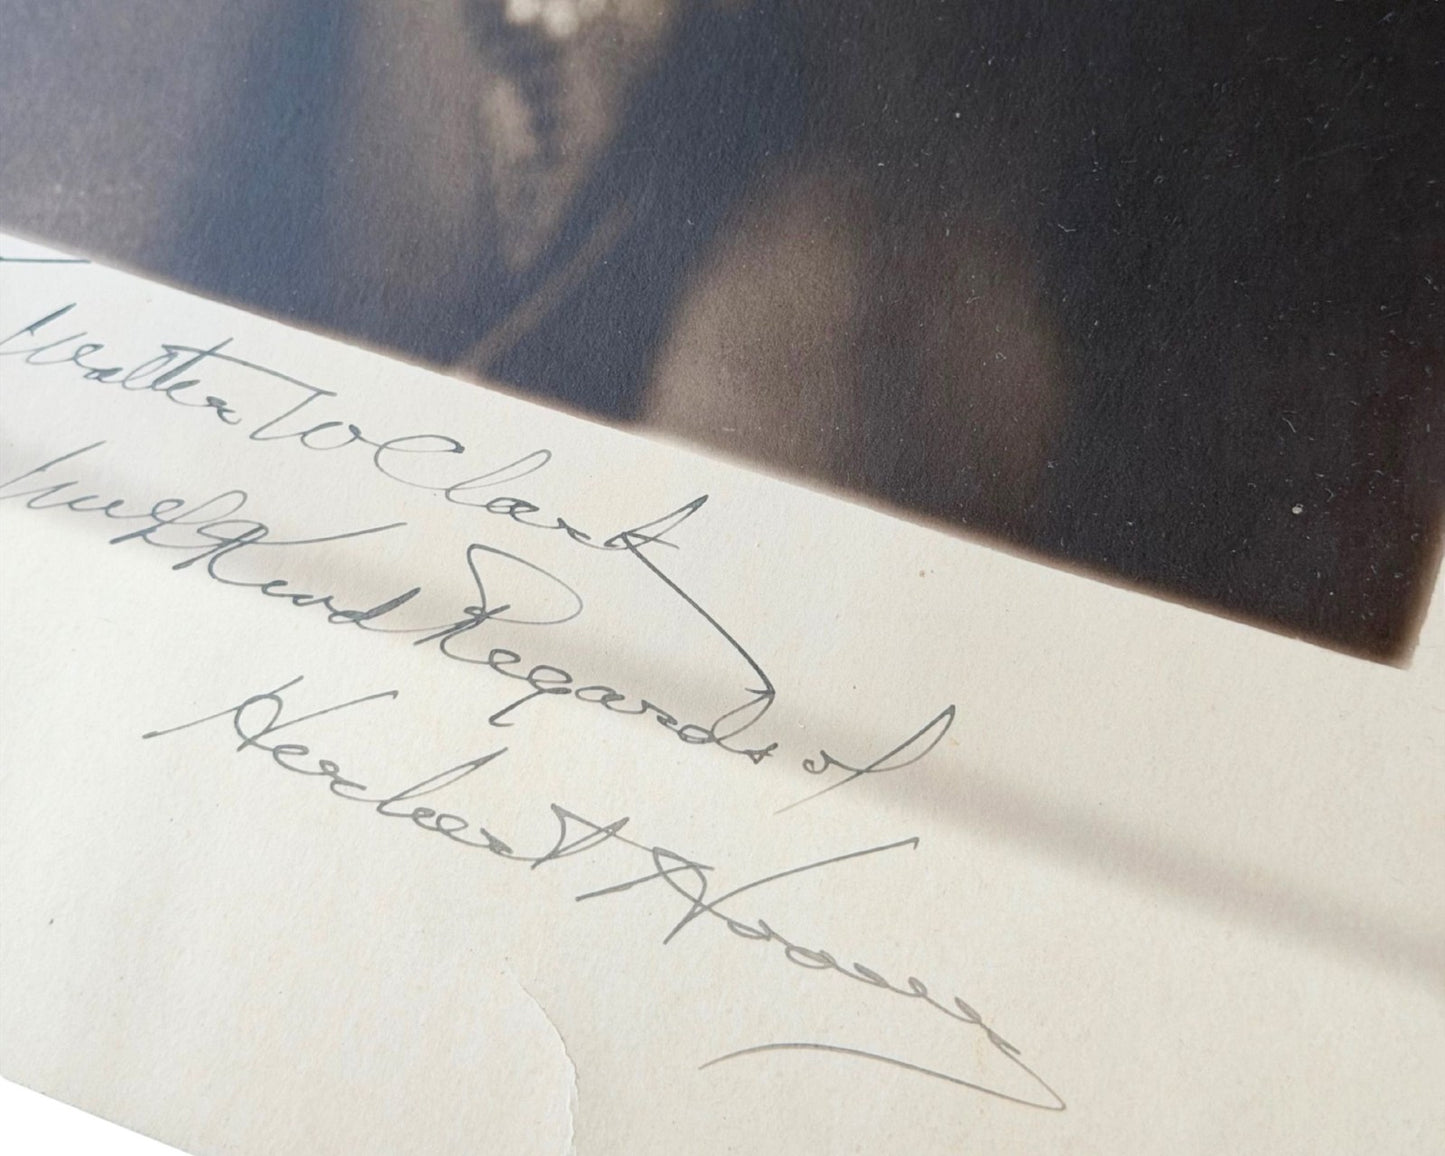 Walter W Clark
With Kind Regards of
Herbert Hoover